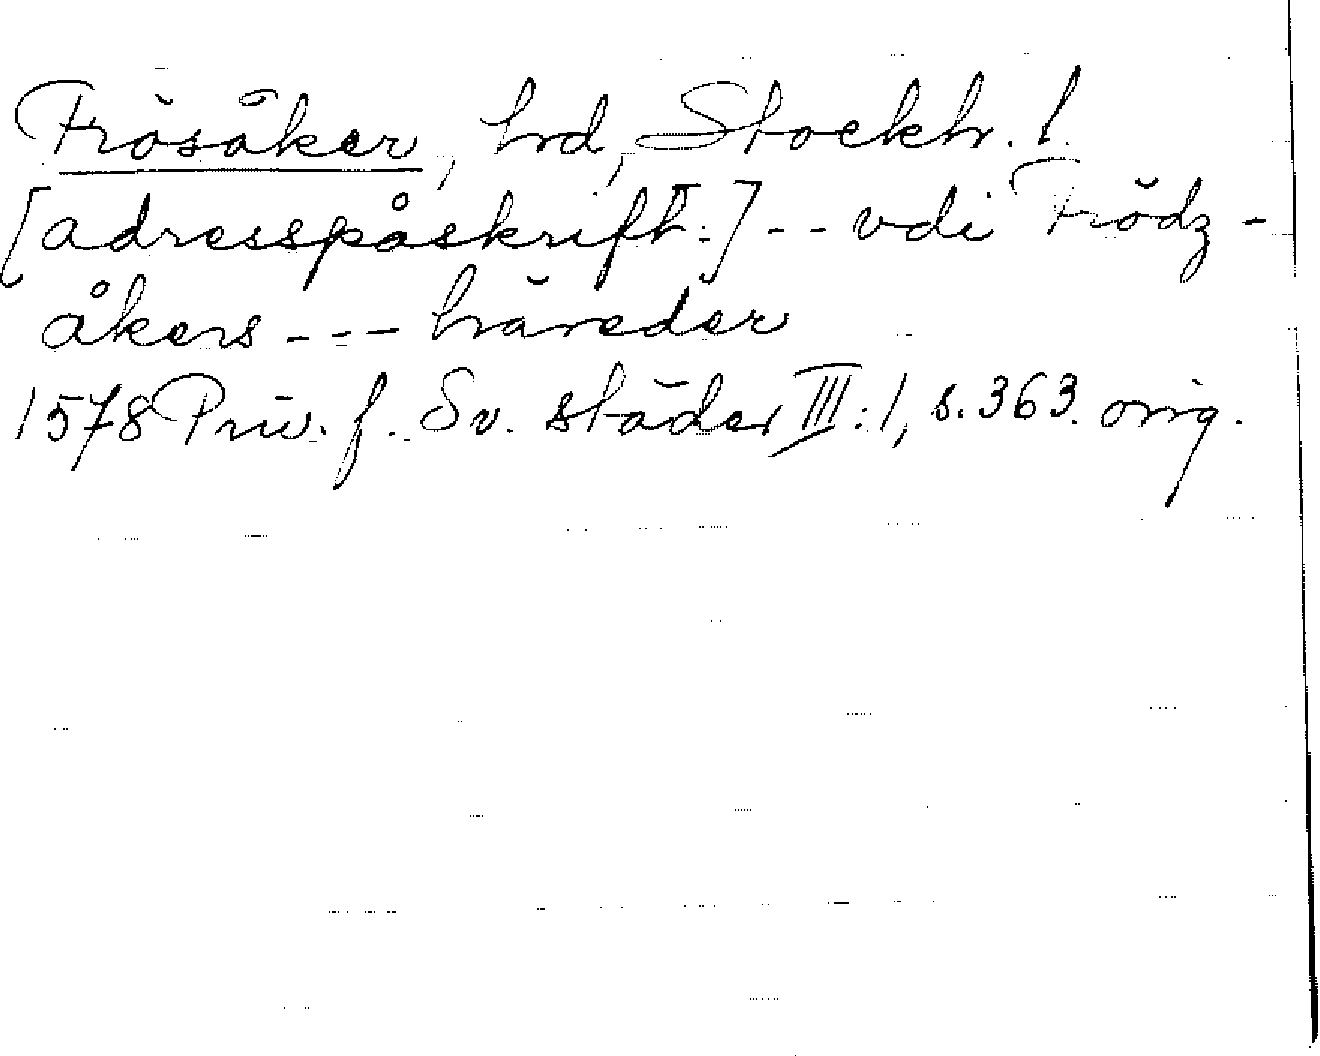 Frösåker, hrd, Stockh. l.
[adresspåskrift:] -- vdi Frödz-
åkers --- häreder
1578 Priv. f. Sv. städer III:1, s. 363. orig.